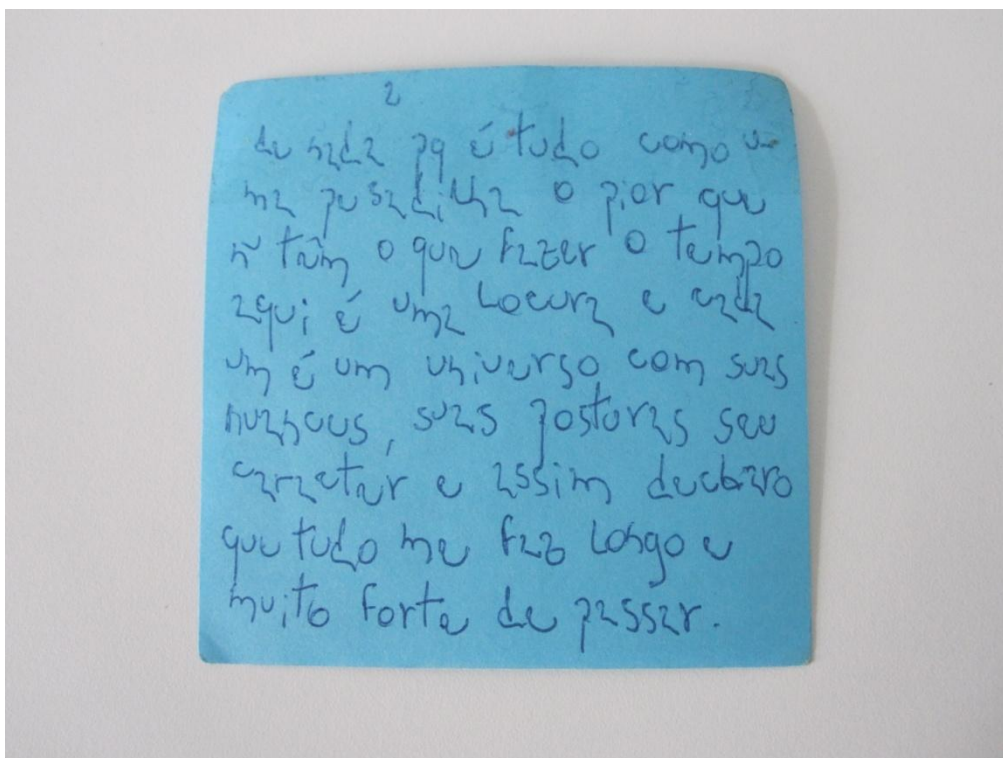 2
de nada pq é tudo como u-
ma pesadilha o pior que
ñ têm o que fazer o tempo
aqui é uma locura e cada
um é um universo com suas
nuances, suas posturas seu
caracter e assim declaro
que tudo me faz longo e
muito forte de passar.